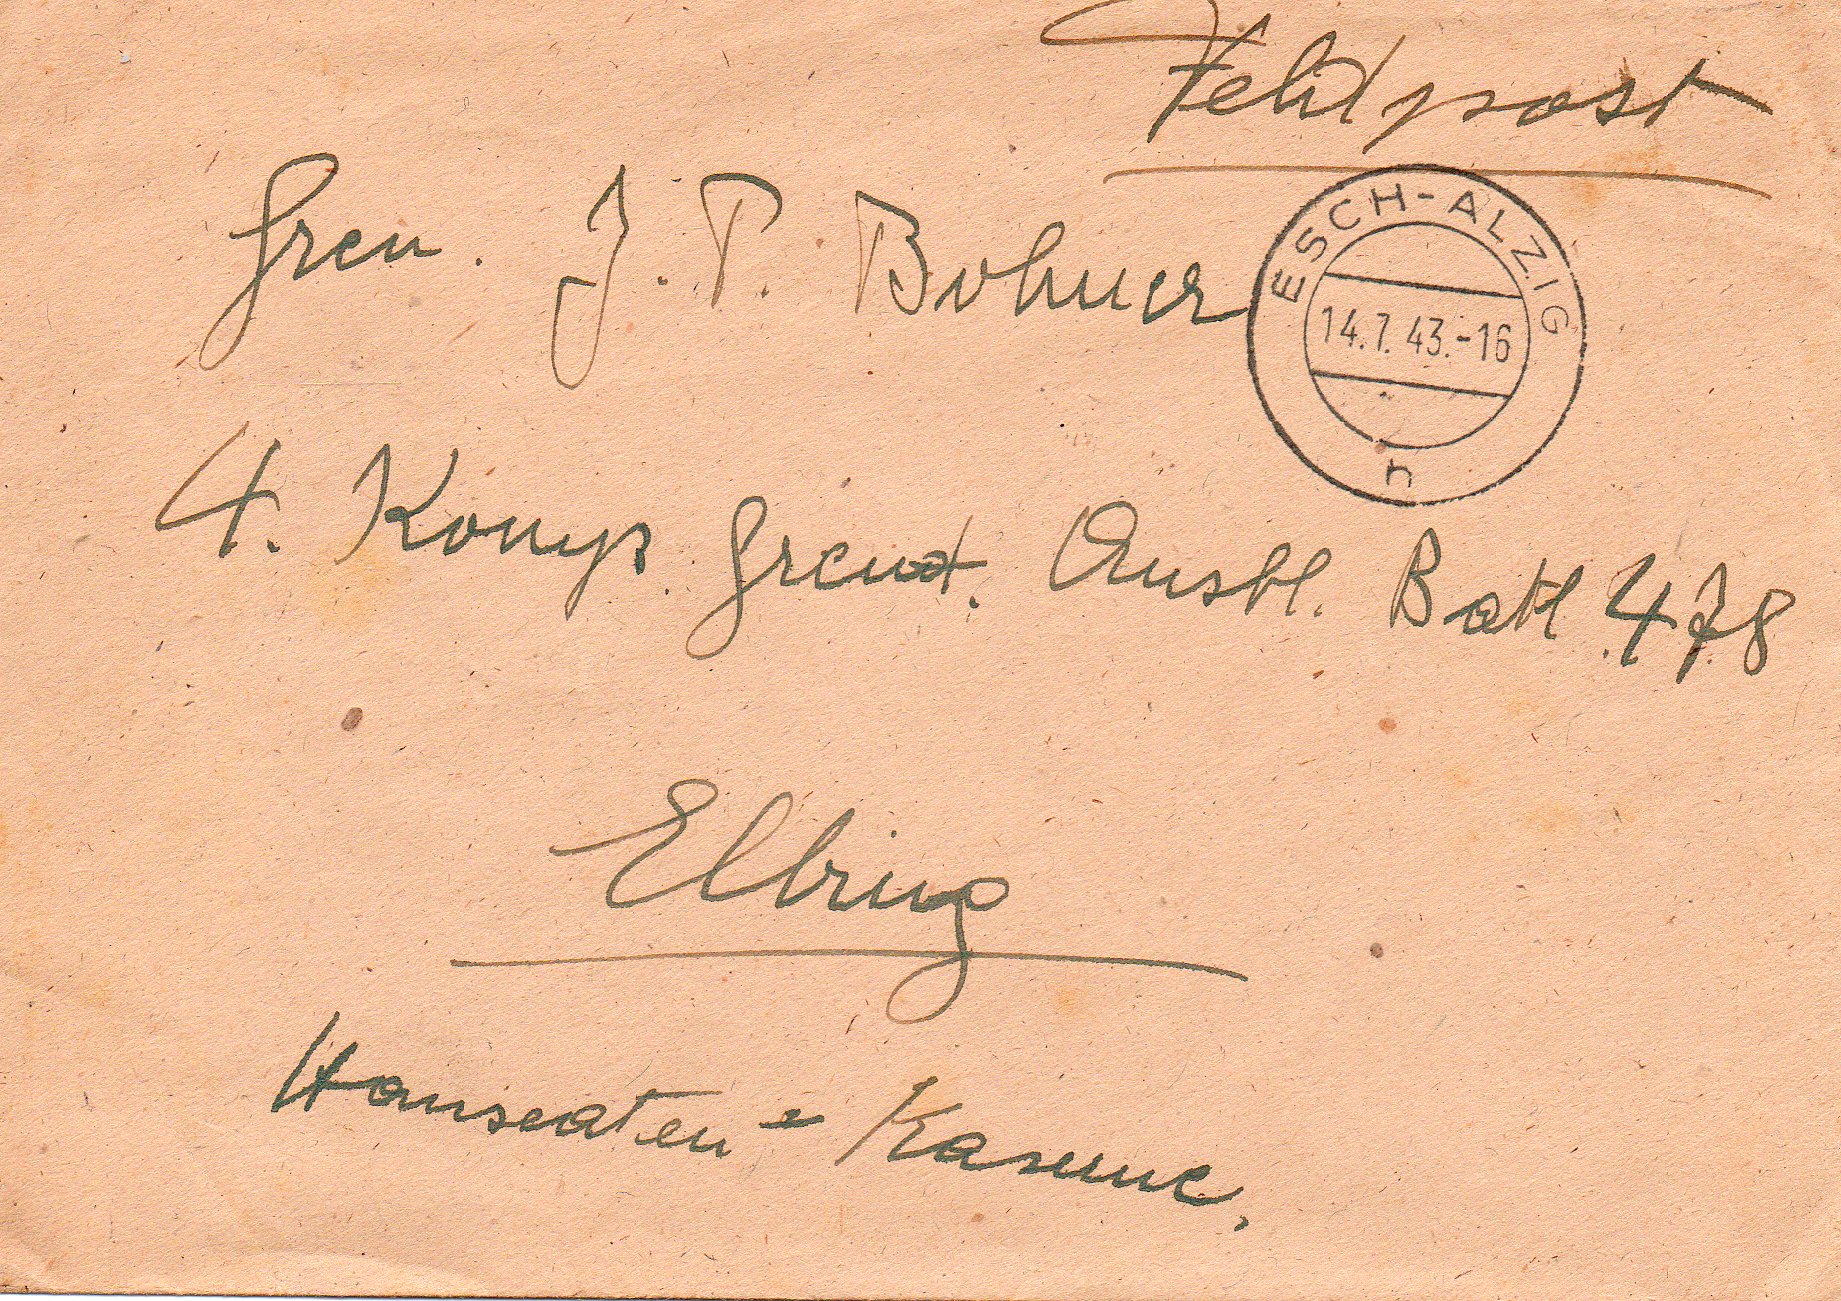 Feldpost
Gren. J. P. Bohner
ESCH-ALZIG
14.7.43.-16
n
4. Komp. Grenad. Ausbl. Batl. 478
Elbing
Hanseaten - Kaserne.